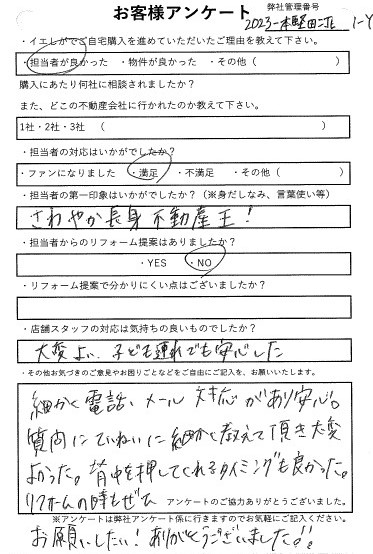 お客様アンケート
弊社管理番号
2023-本堅田二丁 1-Y
・イエしがでご自宅購入を進めていただいたご理由を教えて下さい。
・担当者が良かった ・物件が良かった ・その他（ ）
購入にあたり何社に相談されましたか？
また、どこの不動産会社に行かれたのか教えて下さい。
1社・2社・3社 （ ）
・担当者の対応はいかがでしたか？
・ファンになりました ・満足 ・不満足 ・その他（ ）
・担当者の第一印象はいかがでしたか？（※身だしなみ、言葉使い等）
さわやか長身不動産王！
・担当者からのリフォーム提案はありましたか？
・YES ・NO
・リフォーム提案で分かりにくい点はございましたか？
・店舗スタッフの対応は気持ちの良いものでしたか？
大変よい、子ども連れでも安心した
・その他お気づきのご意見やお困りごとなどをご自由にご記入を、お願いいたします。
細かく電話、メール対応があり安心。
質問にていねいに細かく教えて頂き大変
よかった。背中を押してくれるタイミングも良かった。
リフォームの時もぜひ
アンケートのご協力ありがとうございました。
※アンケートは弊社アンケート係に行きますのでお気軽にご記入ください。
お願いしたい！ありがとうございました!!